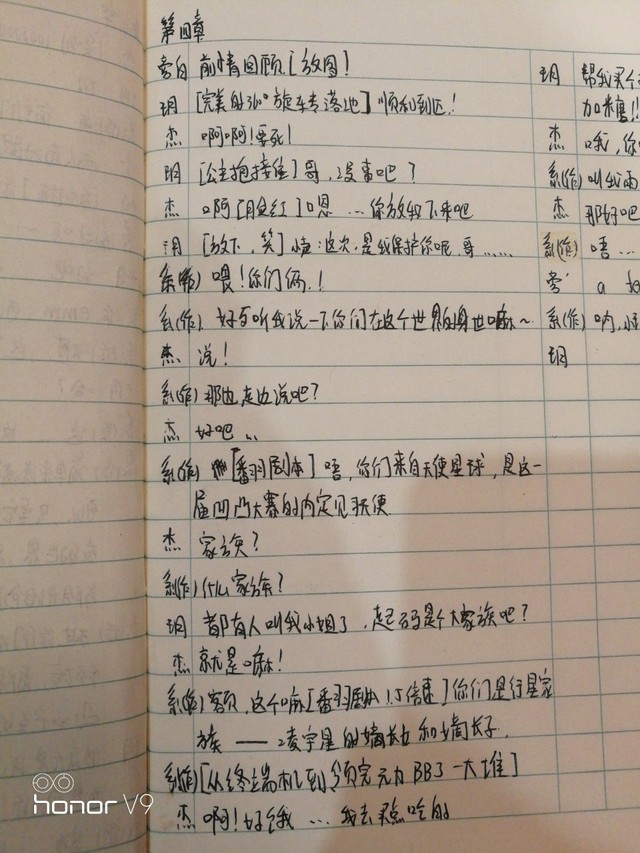 第四章
旁白 前情回顾[放图]
玥 [完美的360°旋转落地] 顺利到达!
杰 啊啊!要死!
玥 [公主抱接住] 哥,没事吧?
杰 啊[脸红]嗯...你放我下来吧
玥 [放下,笑] 这次,是我保护你呢,哥......
系(作) 喂!你们俩!
系(作) 好歹听我说一下你们在这个世界的身世嘛~
杰 说!
系(作) 那边走边说吧?
杰 好吧..
系(作) [翻羽剧本] 唔,你们来自天使星球,是这一
届凹凸大赛的内定见
杰 家族?
系(作) 什么家族?
玥 都有人叫我小姐了,起码是个大家族吧?
杰 就是嘛!
系(作) 客员,这个嘛[翻羽剧本1.5倍速]你们是行星家
族——凌宇星的嫡长女和嫡长子.
系(作) [从终端机到领完元力BB了一大堆]
杰 啊!好饿...我去买点吃的
玥 帮我买个
加糖!!
杰 哦,你
系(作) 叫我
杰 那好吧
系(作) 唔...
旁 a
系(作) 呐,
玥
honor V9